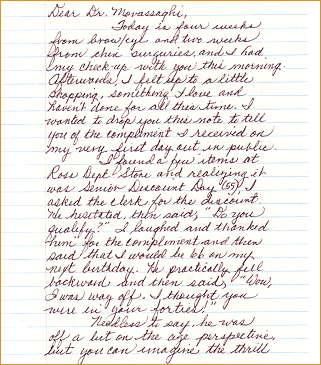 Dear Dr. Movassaghi,
Today is four weeks
from brow/eye and two weeks
from chin surguries, and I had
my check-up with you this morning.
Afterwards, I felt up to a little
shopping, something I love and
haven't done for all this time. I
wanted to drop you this note to tell
you of the compliment I received on
my very first day out in public.
I found a few items at
Ross Dept. Store and realizing it
was Senior Discount Day (55), I
asked the clerk for the discount.
He hesitated, then said, "Do you
qualify?" I laughed and thanked
him for the compliment and then
said that I would be 66 on my
next birthday. He practically fell
backward and then said, "Wow,
I was way off. I thought you
were in your forties."
Needless to say, he was
off a bit on the age perspective,
but you can imagine the thrill